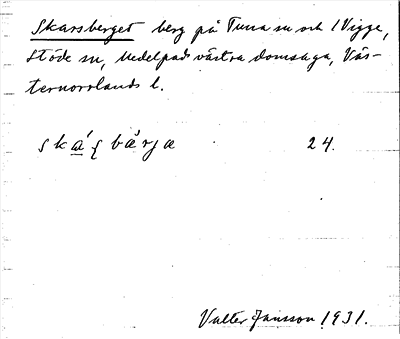 Skarsberget berg på Tuna sn och 1 Vigge,
Stöde sn, Medelpads västra domsaga, Väs-
ternorrlands l.
24.
Valter Jansson 1931.